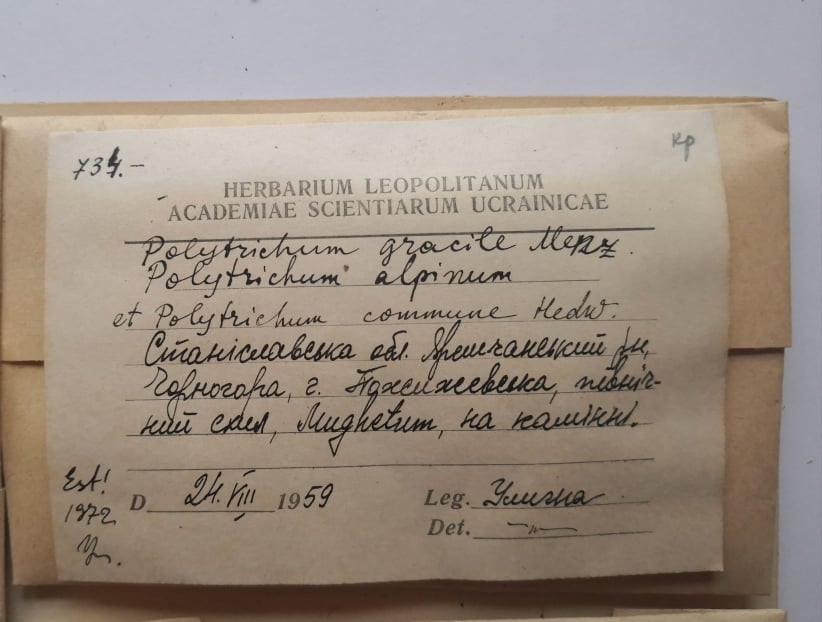 734.-
кр
HERBARIUM LEOPOLITANUM
ACADEMIAE SCIENTIARUM UCRAINICAE
Polytrichum gracile Menz.
Polytrichum alpinum
et Polytrichum commune Hedw.
Станіславська обл. Яремчанський р-н,
Чорногора, г. Пожижевська, північ-
ний схил, Mughetum, на камінні.
Est!
1972
Ул.
D 24.VIII 1959
Leg. Улична
Det. —„—